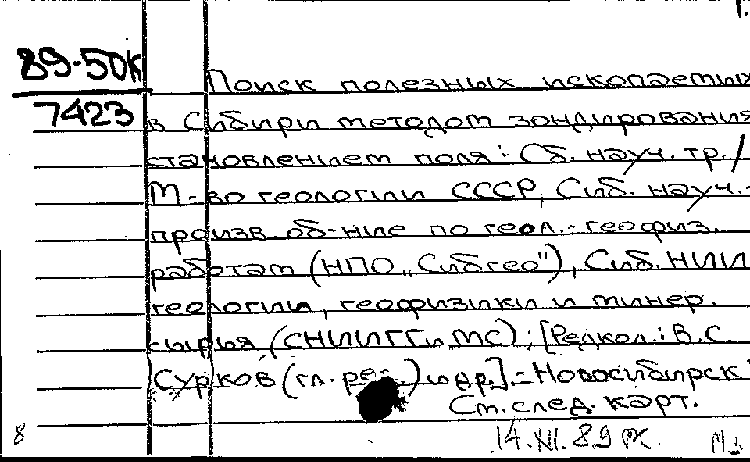 89-50К
7423
Поиск полезных ископаемых
в Сибири методом зондирования
становлением поля: Сб. науч. тр./
М-во геологии СССР, Сиб. науч.-
произв. об-ние по геол.-геофиз.
работам (НПО „Сибгео"), Сиб. НИИ
геологии, геофизики и минер.
сырья (СНИИГГиМС); [Редкол.: В.С.
Сурков (гл. ред.) и др.].-Новосибирск
См. след. карт.
8 14.XII.89